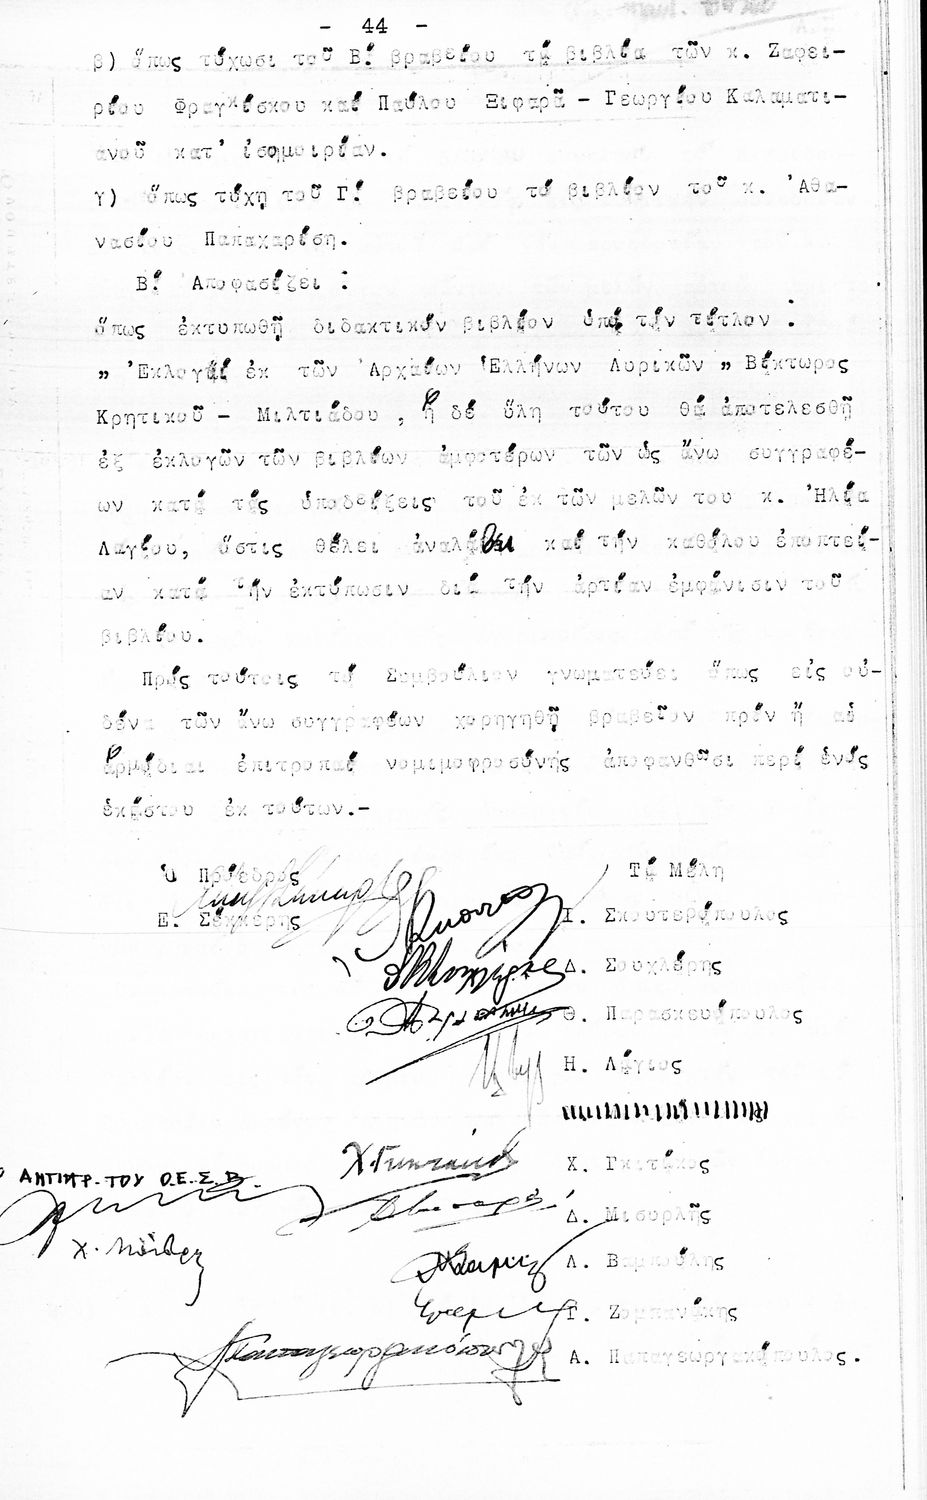 - 44 -
β) ὅπως τύχωσι τοῦ Β! βραβείου τά βιβλία τῶν κ. Ζαφει-
ρίου Φραγκίσκου καί Παύλου Ξιφαρᾶ - Γεωργίου Καλαματι-
ανοῦ κατ' ἰσομοιρίαν.
γ) ὅπως τύχῃ τοῦ Γ! βραβείου τό βιβλίον τοῦ κ. 'Αθα-
νασίου Παπαχαρίση.
Β! 'Αποφασίζει :
ὅπως ἐκτυπωθῇ διδακτικόν βιβλίον ὑπό τόν τίτλον :
" 'Εκλογαί ἐκ τῶν 'Αρχαίων Ἑλλήνων Λυρικῶν " Βίκτωρος
Κρητικοῦ - Μιλτιάδου , ἡ δέ ὕλη τούτου θά ἀποτελεσθῇ
ἐξ ἐκλογῶν τῶν βιβλίων ἀμφοτέρων τῶν ὡς ἄνω συγγραφέ-
ων κατά τάς ὑποδείξεις τοῦ ἐκ τῶν μελῶν του κ. 'Ηλία
Λαγίου, ὅστις θέλει ἀναλάβει καί τήν καθόλου ἐποπτεί-
αν κατά τήν ἐκτύπωσιν διά τήν ἀρτίαν ἐμφάνισιν τοῦ
βιβλίου.
Πρός τούτοις τό Συμβούλιον γνωματεύει ὅπως εἰς οὐ-
δένα τῶν ἄνω συγγραφέων χορηγηθῇ βραβεῖον πρίν ἤ αἱ
ἁρμόδιαι ἐπιτροπαί νομιμοφροσύνης ἀποφανθῶσι περί ἑνός
ἑκάστου ἐκ τούτων.-
Ὁ Πρόεδρος
Τά Μέλη
Ε. Σέκκερης
Γ. Σκουτερόπουλος
Δ. Σουχλέρης
Θ. Παρασκευόπουλος
Η. Λάγιος
Χ. Γκιτάκος
Ο ΑΝΤΙΠΡ. ΤΟΥ Ο.Ε.Σ.Β.
Δ. Μισυρλῆς
Λ. Βαμπούλης
Γ. Ζομπανάκης
Α. Παπαγεωργακόπουλος.